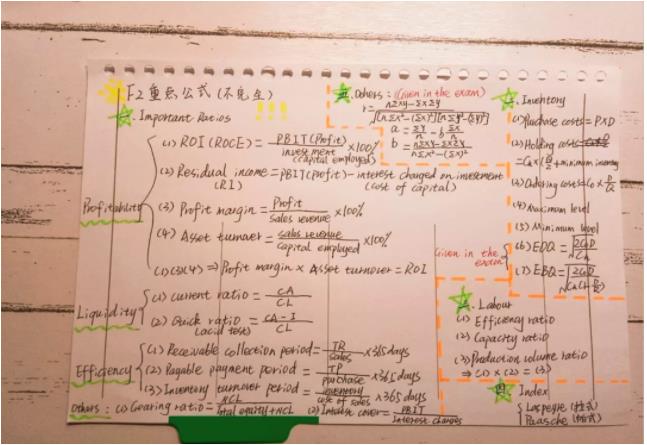 F2重点公式(不完全)!!!
一. Important Ratios
Profitability
(1) ROI (ROCE) = PBIT(Profit) / investment (capital employed) ×100%
(2) Residual income (RI) = PBIT(Profit) - interest charged on investment (cost of capital)
(3) Profit margin = Profit / sales revenue ×100%
(4) Asset turnover = sales revenue / capital employed ×100%
(1)(3)(4) ⇒ Profit margin × Asset turnover = ROI
Liquidity
(1) current ratio = CA / CL
(2) Quick ratio (acid test) = CA - I / CL
Efficiency
(1) Receivable collection period = TR / sales ×365 days
(2) Payable payment period = TP / purchase ×365 days
(3) Inventory turnover period = inventory / cost of sales ×365 days
Others: (1) Gearing ratio = NCL / Total equity+NCL (2) Interest cover = PBIT / interest charges
五. Others: (Given in the exam)
r = nΣxy - ΣxΣy / √[nΣx²-(Σx)²][nΣy²-(Σy)²]
a = Σy / n - b Σx / n
b = nΣxy - ΣxΣy / nΣx² - (Σx)²
二. Inventory
(1) Purchase costs = P×D
(2) Holding costs
= CH × (Q/2 + minimum inventory)
(3) Ordering costs = Co × D/Q
(4) Maximum level
(5) Minimum level
Given in the exam
(6) EOQ = √2CoD / CH
(7) EBQ = √2CoD / CH(1-D/R)
三. Labour
(1) Efficiency ratio
(2) Capacity ratio
(3) Production volume ratio
⇒ (1) × (2) = (3)
四 Index
Laspeyre
Paasche